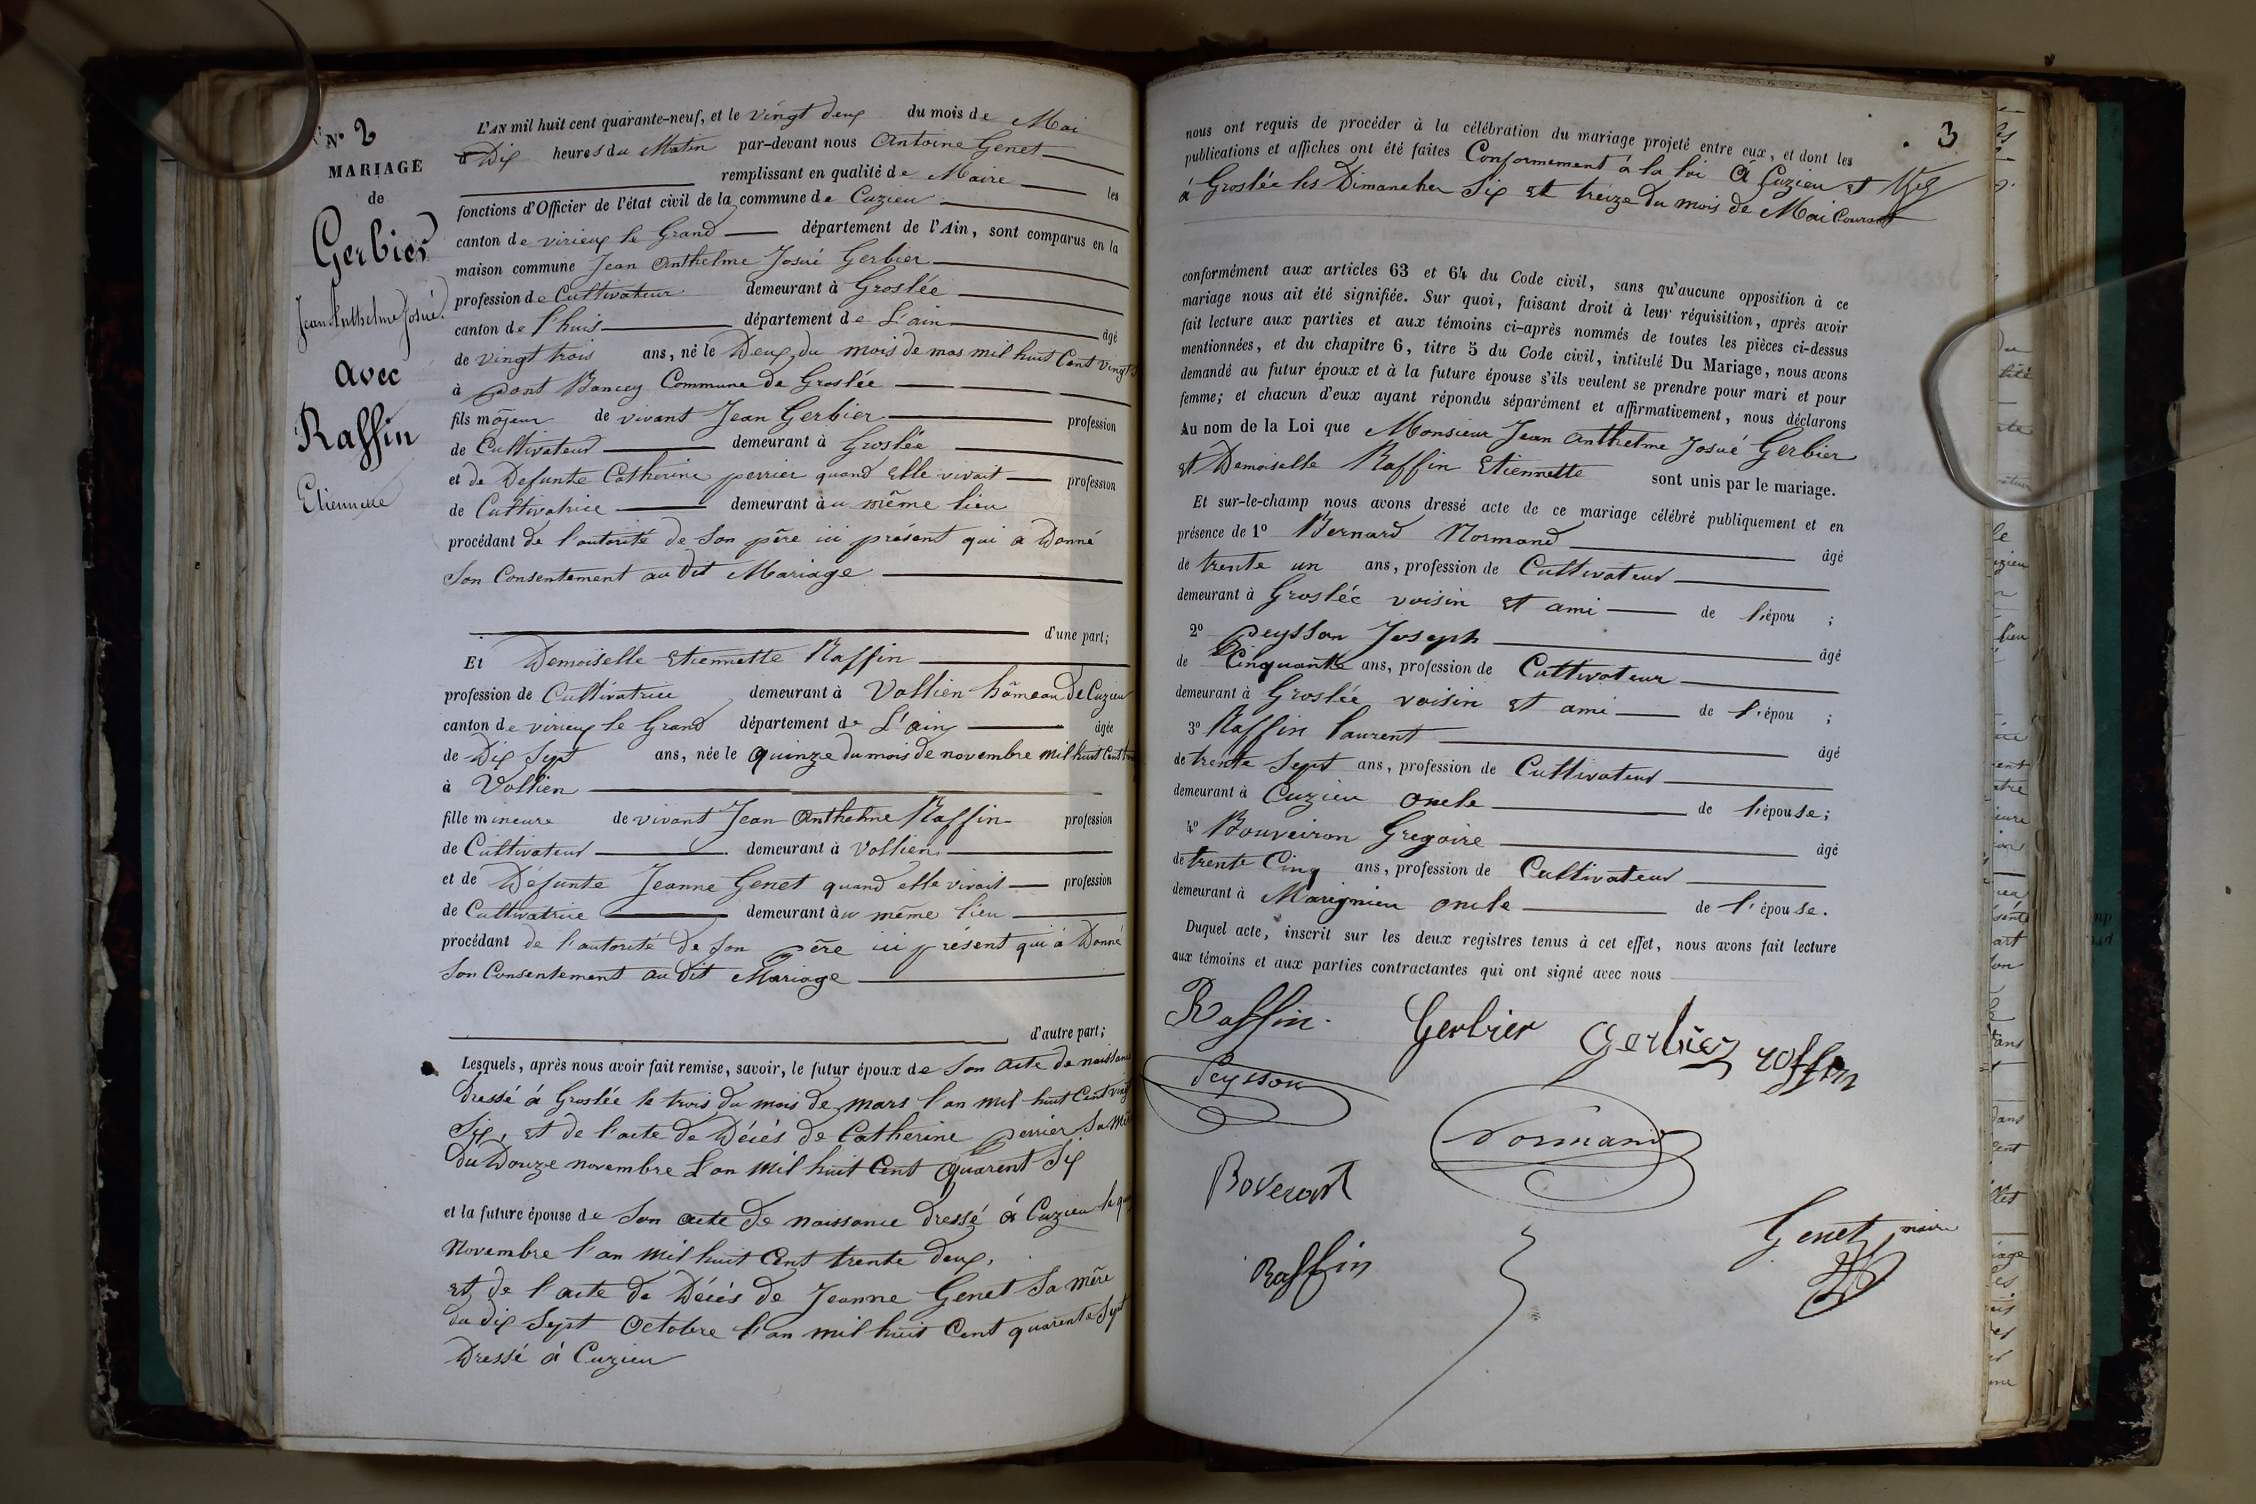 N° 2
MARIAGE
de
Gerbier
Jean Anthelme Josué
avec
Raffin
Etiennette
L'AN mil huit cent quarante-neuf, et le vingt deux du mois de Mai
à Dix heures du Matin par-devant nous Antoine Genet
remplissant en qualité de Maire les
fonctions d'Officier de l'état civil de la commune de Cuzieu
canton de virieux le Grand département de l'Ain, sont comparus en la
maison commune Jean Anthelme Josué Gerbier
profession de Cultivateur demeurant à Groslée
canton de l'huis département de L'ain âgé
de vingt trois ans, né le Deux du mois de mas mil huit Cent vingt
à pont Bancey Commune de Groslée
fils majeur de vivant Jean Gerbier profession
de Cultivateur demeurant à Groslée
et de Defunte Catherine perrier quand Elle vivait profession
de Cultivatrice demeurant au même lieu
procédant de l'autorité de Son père ici présent qui a Donné
Son Consentement au dit Mariage
d'une part;
Et Demoiselle Etiennette Raffin
profession de Cultivatrice demeurant à Vollien hâmeau de Cuzieu
canton de virieux le Grand département de L'ain âgée
de Dix Sept ans, née le quinze du mois de novembre mil huit Cent
à Vollien
fille mineure de vivant Jean Anthelme Raffin profession
de Cultivateur demeurant à Vollien
et de Défunte Jeanne Genet quand elle vivait profession
de Cultivatrice demeurant au même lieu
procédant de l'autorité de Son père ici présent qui à Donné
Son Consentement au dit Mariage
d'autre part;
Lesquels, après nous avoir fait remise, savoir, le futur époux de Son acte de naissance
dressé à Groslée le trois du mois de mars l'an mil huit Cent vingt
Six, et de l'acte de Décés de Catherine perrier Sa mère
du Douze novembre L'an mil huit Cent quarent Six
et la future épouse de Son acte de naissance dressé à Cuzieu le
Novembre l'an mil huit Cent trente deux,
et de l'acte de Décés de Jeanne Genet Sa mère
du dix Sept Octobre l'an mil huit Cent quarente Sept
Dressé à Cuzieu
3
nous ont requis de procéder à la célébration du mariage projeté entre eux, et dont les
publications et affiches ont été faites Conformement à la loi à Cuzieu et
à Groslée les Dimanches Six et treize du mois de Mai Courant
conformément aux articles 63 et 64 du Code civil, sans qu'aucune opposition à ce
mariage nous ait été signifiée. Sur quoi, faisant droit à leur réquisition, après avoir
fait lecture aux parties et aux témoins ci-après nommés de toutes les pièces ci-dessus
mentionnées, et du chapitre 6, titre 5 du Code civil, intitulé Du Mariage, nous avons
demandé au futur époux et à la future épouse s'ils veulent se prendre pour mari et pour
femme; et chacun d'eux ayant répondu séparément et affirmativement, nous déclarons
Au nom de la Loi que Monsieur Jean Anthelme Josué Gerbier
et Demoiselle Raffin Etiennette sont unis par le mariage.
Et sur-le-champ nous avons dressé acte de ce mariage célébré publiquement et en
présence de 1° Bernard Normand âgé
de trente un ans, profession de Cultivateur
demeurant à Groslée voisin et ami de l'épou ;
2° Peysson Joseph âgé
de Cinquante ans, profession de Cultivateur
demeurant à Groslée voisin et ami de l'épou ;
3° Raffin Laurent âgé
de trente Sept ans, profession de Cultivateur
demeurant à Cuzieu oncle de l'épouse;
4° Bouveiron Gregoire âgé
de trente Cinq ans, profession de Cultivateur
demeurant à Marignieu oncle de l'épouse.
Duquel acte, inscrit sur les deux registres tenus à cet effet, nous avons fait lecture
aux témoins et aux parties contractantes qui ont signé avec nous
Raffin Gerbier Gerbier roffin
Peysson
Normand
Boveront
Genet maire
Raffin